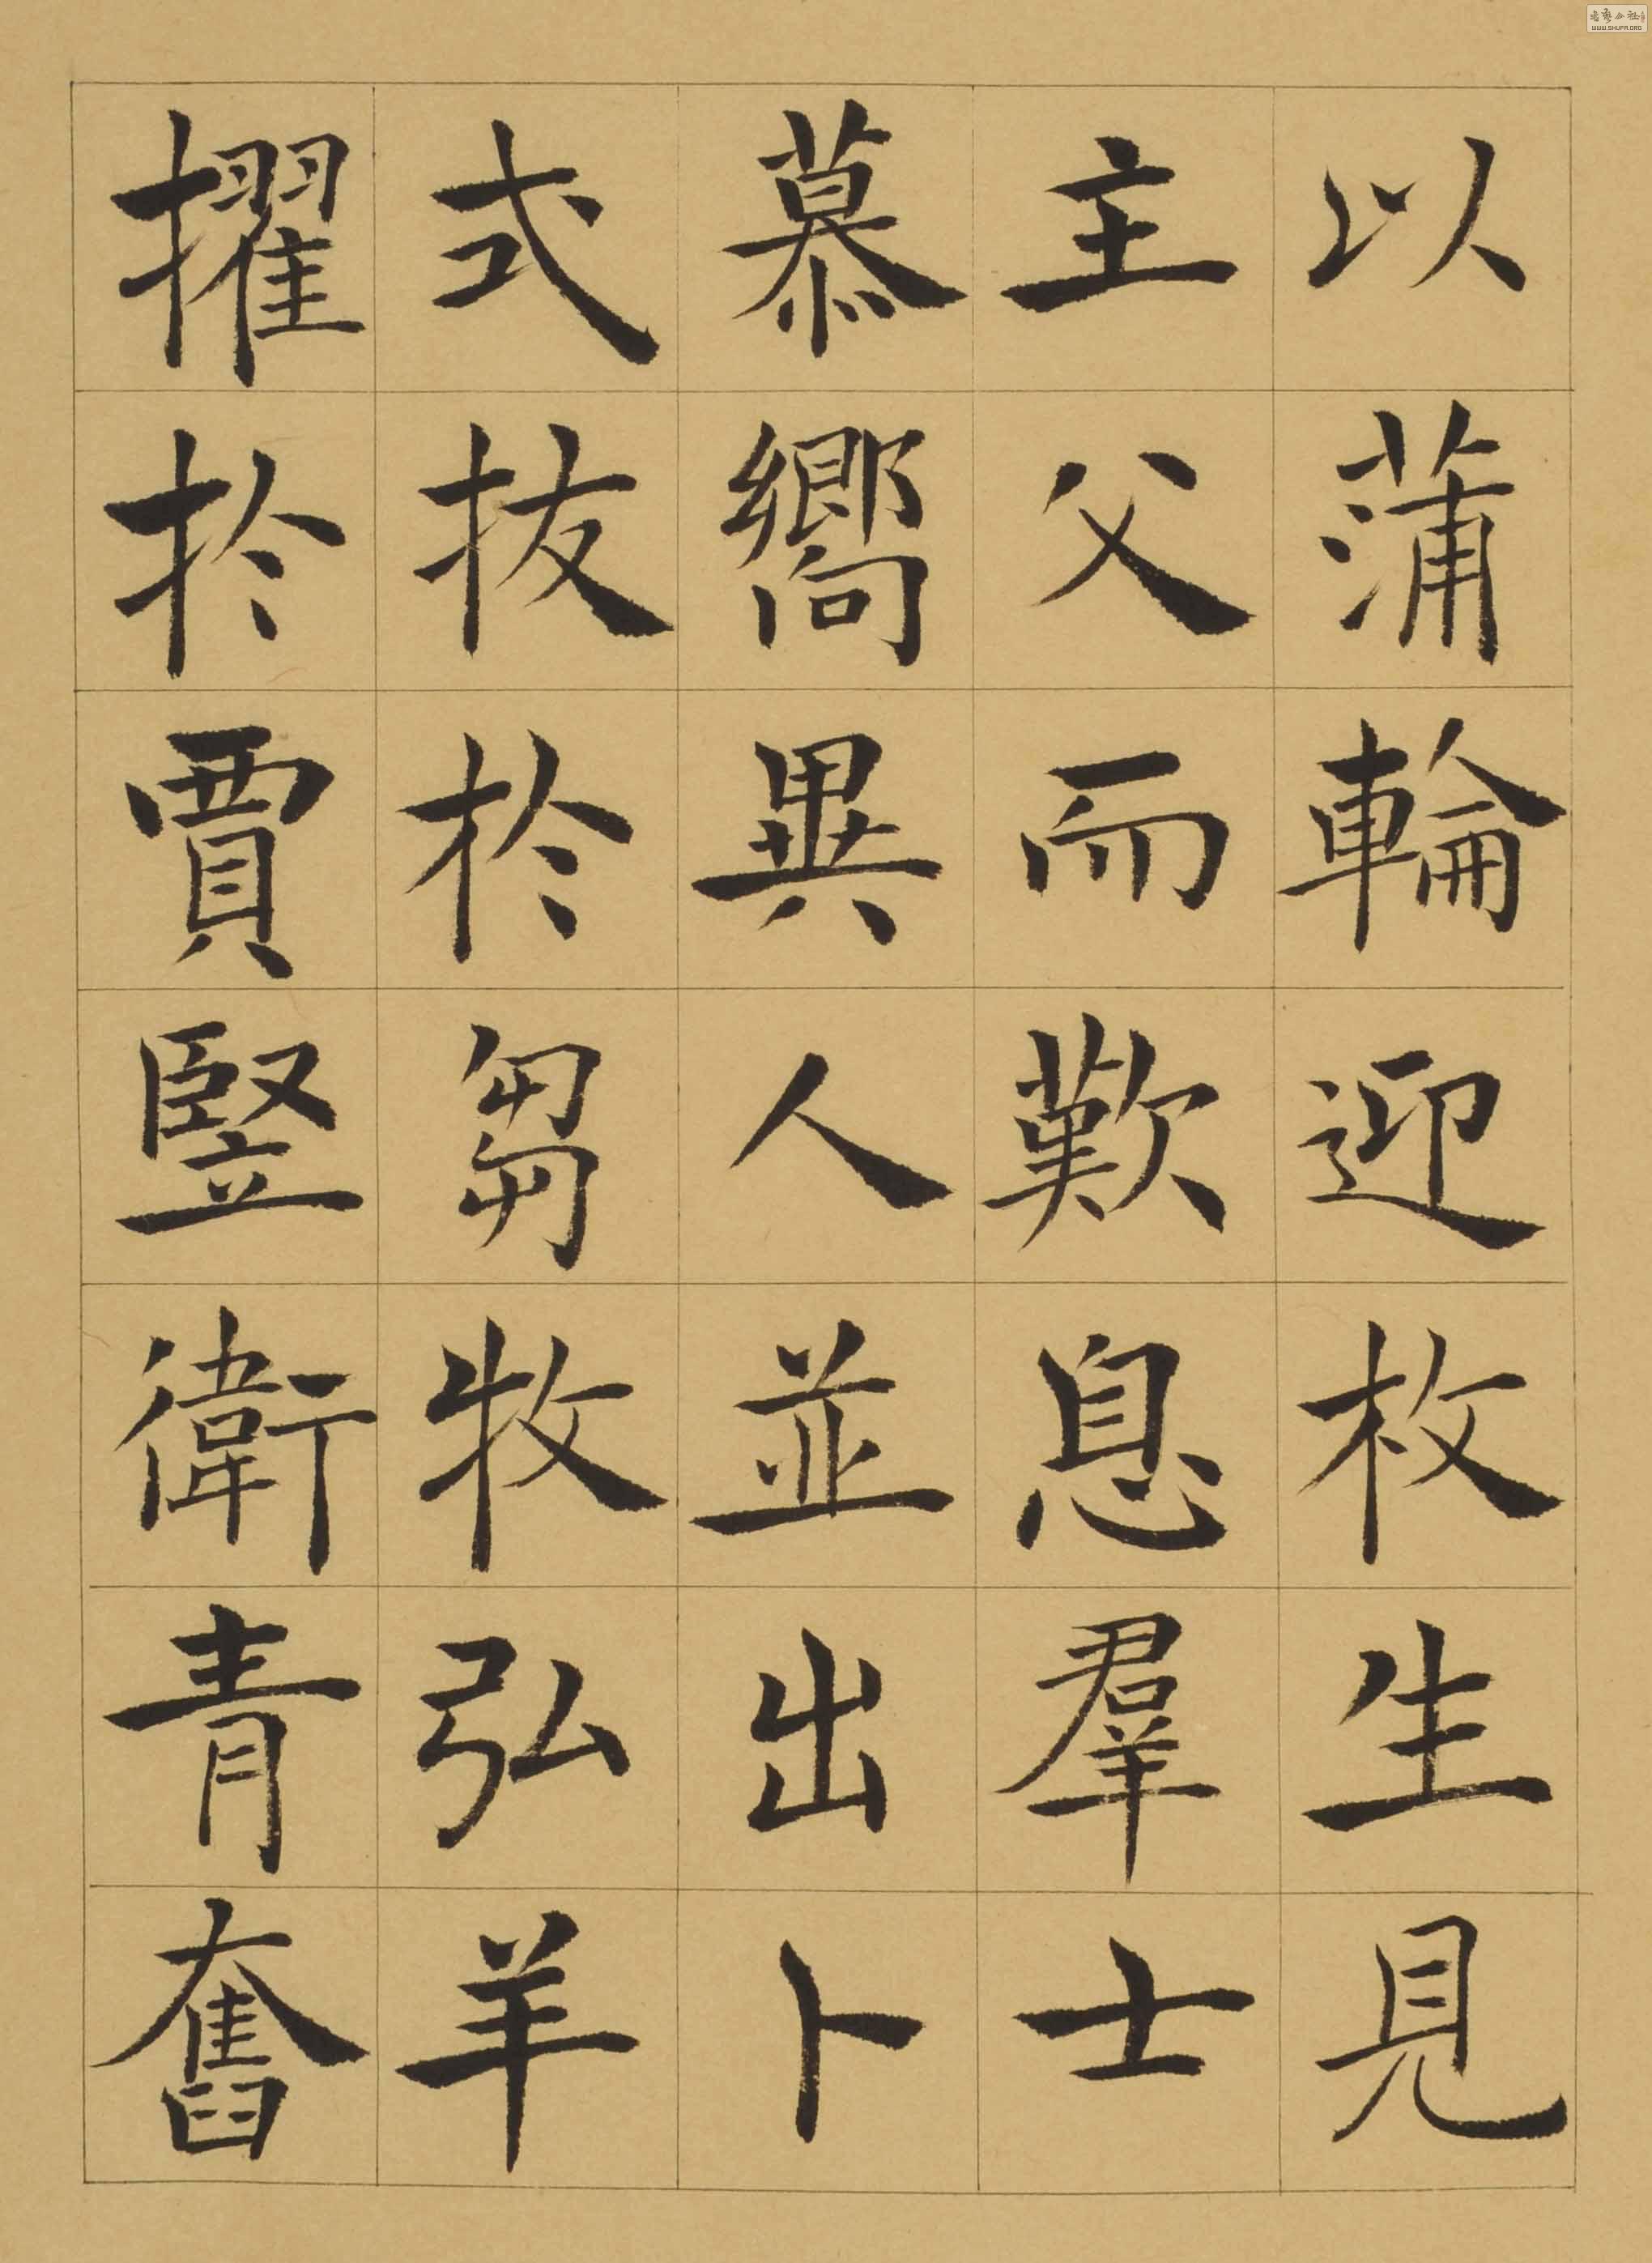 以蒲輪迎枚生見
主父而歎息羣士
慕嚮異人並出卜
式拔於芻牧弘羊
擢於賈豎衛青奮
WWW.SHUFA.ORG